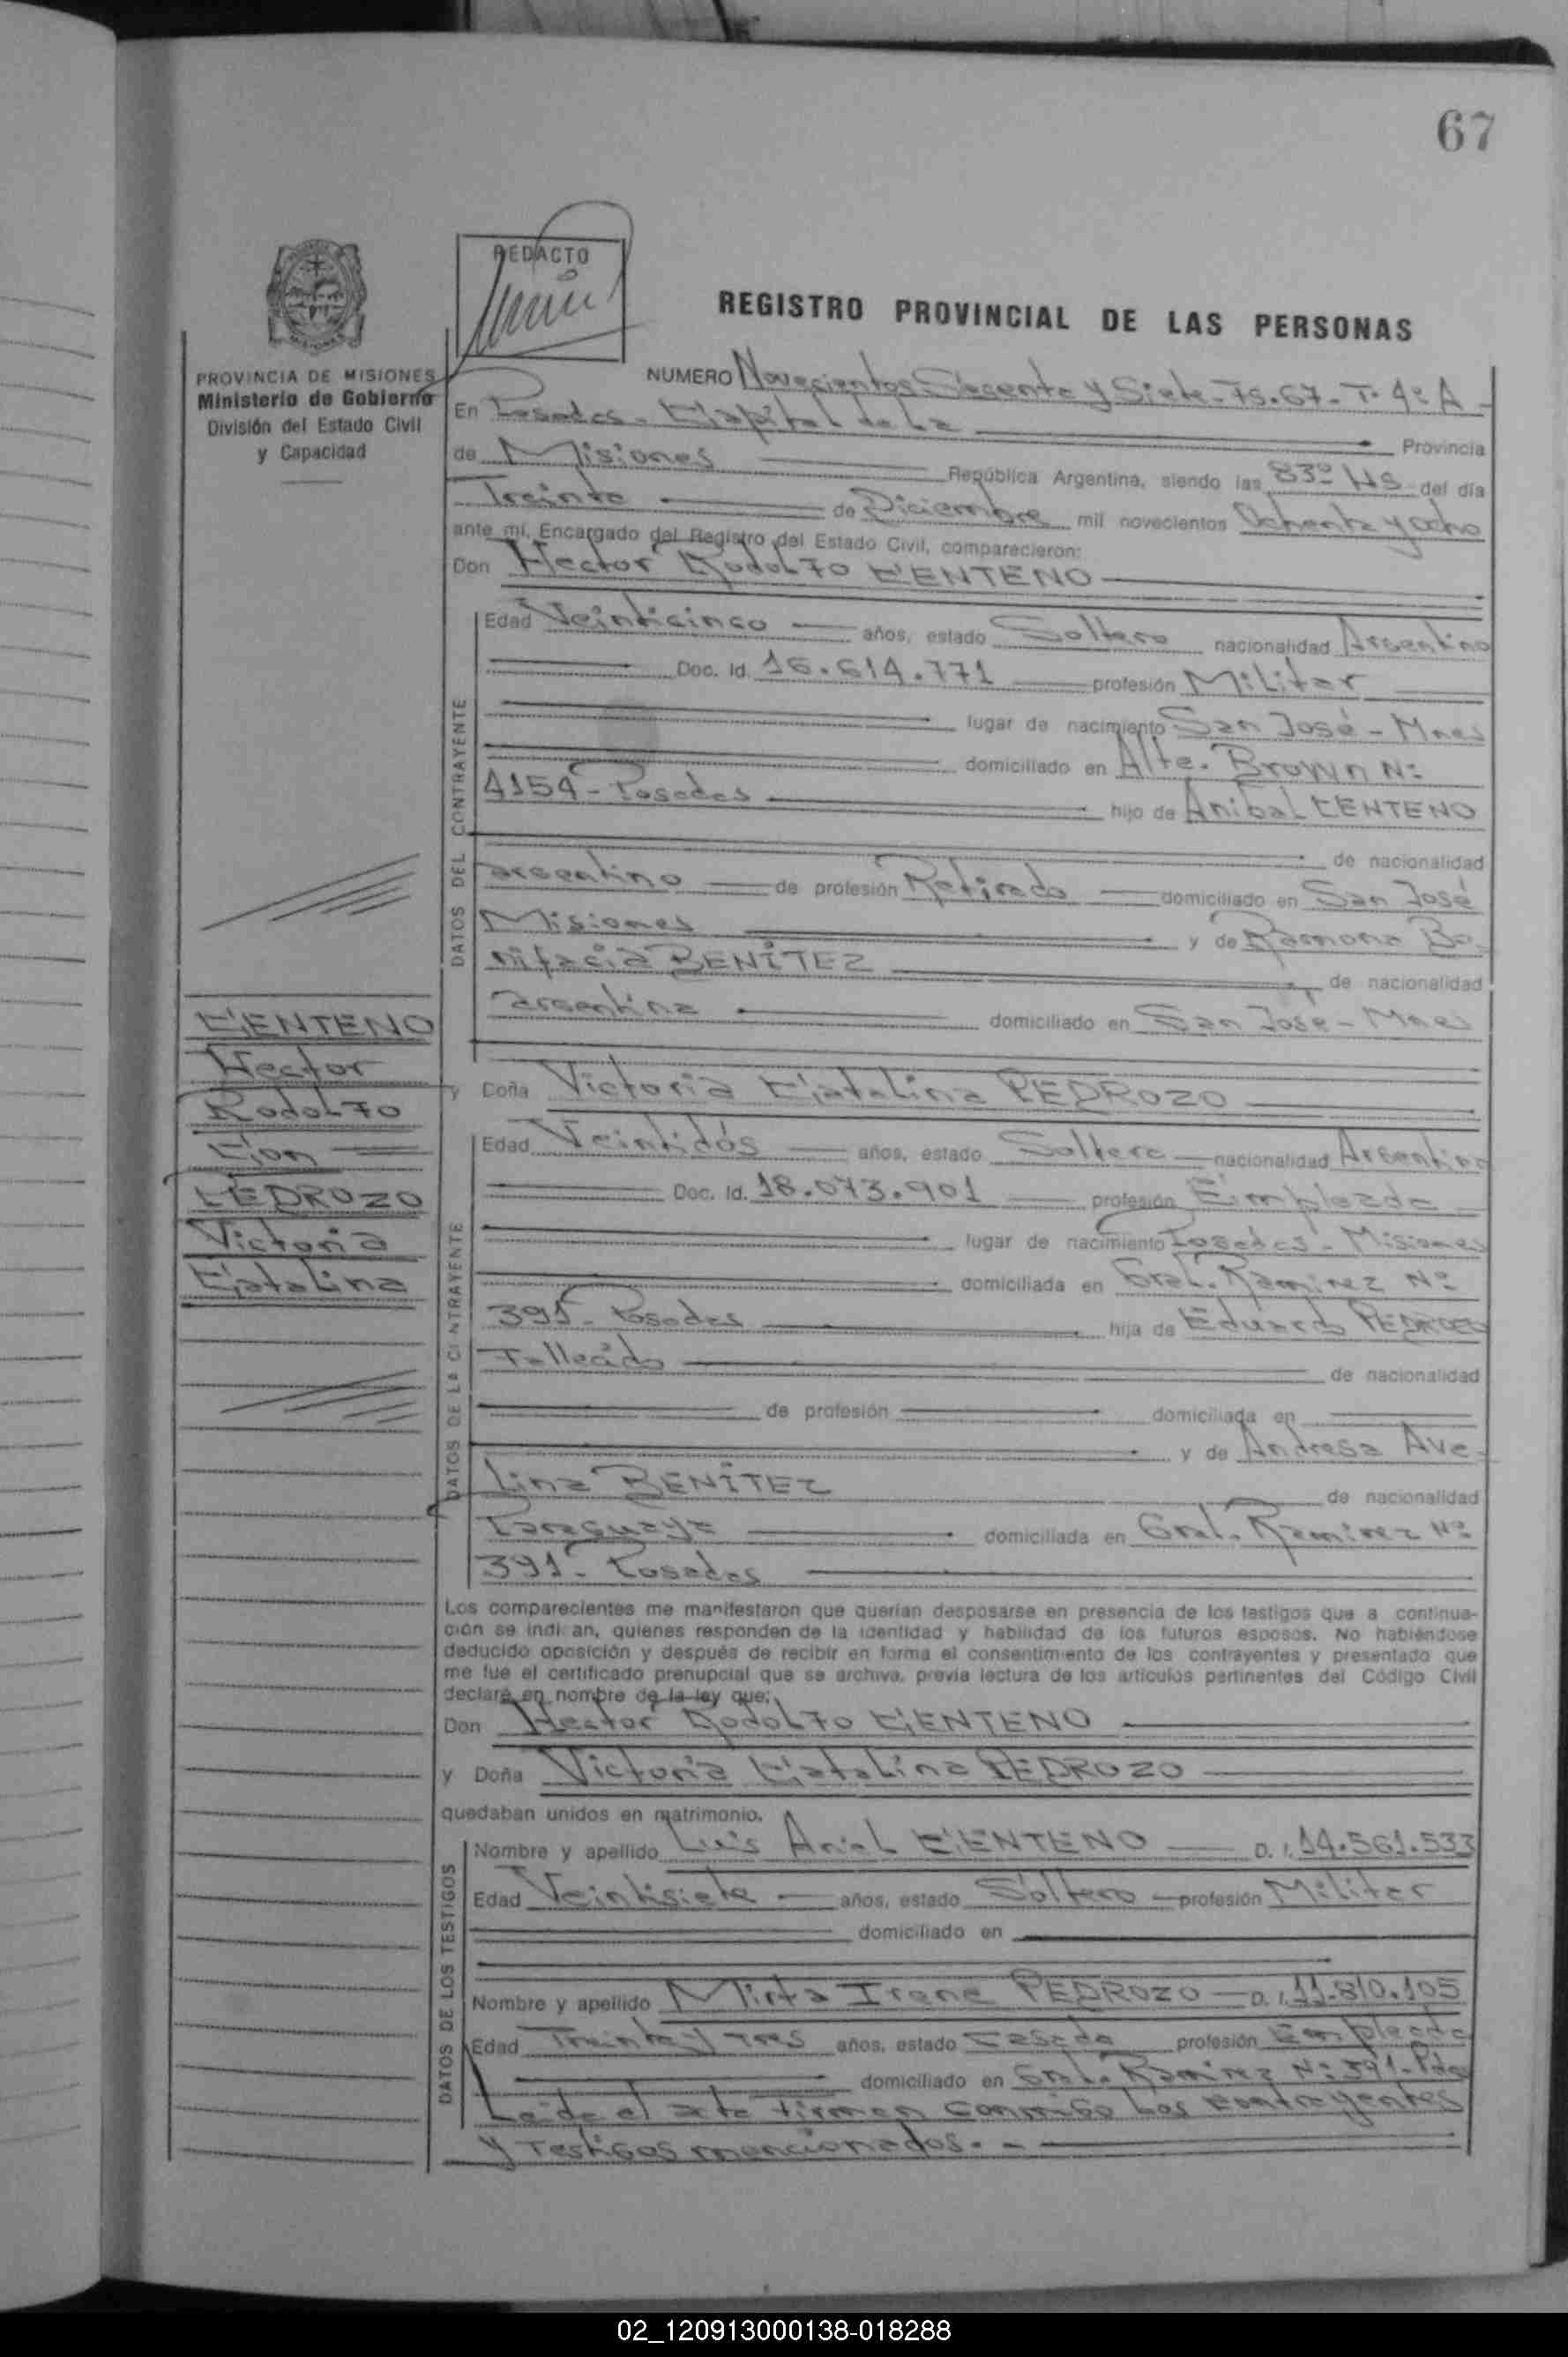 67
REDACTO
REGISTRO PROVINCIAL DE LAS PERSONAS
PROVINCIA DE MISIONES
Ministerio de Gobierno
División del Estado Civil
y Capacidad
NUMERO Novecientos Sesenta y Siete - Fs. 67 - T. 4º A -
En Posadas - Capital de La Provincia
de Misiones República Argentina, siendo las 830 Hs del día
Treinta de Diciembre mil novecientos Ochenta y ocho
ante mí, Encargado del Registro del Estado Civil, comparecieron:
Don Hector Rodolfo CENTENO
DATOS DEL CONTRAYENTE
Edad Veinticinco años, estado Soltero nacionalidad Argentino
Doc. Id. 16.614.771 profesión Militar
lugar de nacimiento San José - Mnes
domiciliado en Alte. Brown Nº
4154 - Posadas hijo de Anibal CENTENO
de nacionalidad
argentino de profesión Retirado domiciliado en San José
Misiones y de Ramona Bo-
nifacia BENÍTEZ de nacionalidad
argentina domiciliado en San José - Mnes
CENTENO
Hector
Rodolfo
Con
PEDROZO
Victoria
Catalina
y Doña Victoria Catalina PEDROZO
DATOS DE LA CONTRAYENTE
Edad Veintidós años, estado Soltera nacionalidad Argentina
Doc. Id. 18.073.901 profesión Empleada
lugar de nacimiento Posadas - Misiones
domiciliada en Gral. Ramirez Nº
391 - Posadas hija de Eduardo PEDROZO
Fallecido de nacionalidad
de profesión domiciliada en
y de Andresa Ave-
lina BENÍTEZ de nacionalidad
Paraguaya domiciliada en Gral. Ramirez Nº
391 - Posadas
Los comparecientes me manifestaron que querían desposarse en presencia de los testigos que a continua-
ción se indi an, quienes responden de la identidad y habilidad de los futuros esposos. No habiéndose
deducido oposición y después de recibir en forma el consentimiento de los contrayentes y presentado que
me fue el certificado prenupcial que se archiva, previa lectura de los artículos pertinentes del Código Civil
declaré en nombre de la ley que:
Don Hector Rodolfo CENTENO
y Doña Victoria Catalina PEDROZO
quedaban unidos en matrimonio.
DATOS DE LOS TESTIGOS
Nombre y apellido Luis Ariel CENTENO D. I. 14.561.533
Edad Veintisiete años, estado Soltero profesión Militar
domiciliado en
Nombre y apellido Mirta Irene PEDROZO D. I. 11.810.105
Edad Treinta y Tres años, estado Casada profesión Empleada
domiciliado en Gral. Ramirez Nº 391 - Pdas
Leida el acta firman conmigo Los contrayentes
y Testigos mencionados. -
02_120913000138-018288